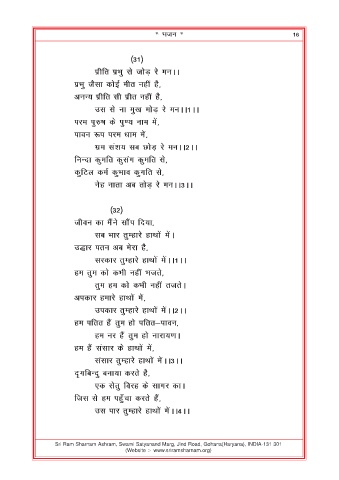 * भजन *
16
(31)
प्रीति प्रभु से जोड़ रे मन।।
प्रभु जैसा कोई मीत नहीं है,
अनन्य प्रीति सी प्रीत नहीं है,
उस से ना मुख मोड रे मन।।1।।
परम पुरुष के पुण्य नाम में,
पावन रूप परम धाम में,
भ्रम संशय सब छोड़ रे मन।।2।।
निन्दा कुमति कुसंग कुमति से,
कुटिल कर्म कुभाव कुगति से,
नेह नाता अब तोड़ रे मन।।3।।
(32)
जीवन का मैंने सौंप दिया,
सब भार तुम्हारे हाथों में।
उद्धार पतन अब मेरा है,
सरकार तुम्हारे हाथों में।।1।।
हम तुम को कभी नहीं भजते,
तुम हम को कभी नहीं तजते।
अपकार हमारे हाथों में,
उपकार तुम्हारे हाथों में।।2।।
हम पतित हैं तुम हो पतित-पावन,
हम नर हैं तुम हो नारायण।
हम हैं संसार के हाथों में,
संसार तुम्हारे हाथों में।।3।।
दृगबिन्दु बनाया करते है,
एक सेतु विरह के सागर का।
जिस से हम पहुँचा करते हैं,
उस पार तुम्हारे हाथों में।।4।।
Sri Ram Sharnam Ashram, Swami Satyanand Marg, Jind Road, Gohana(Haryana), INDIA-131 301
(Website :- www.sriramsharnam.org)